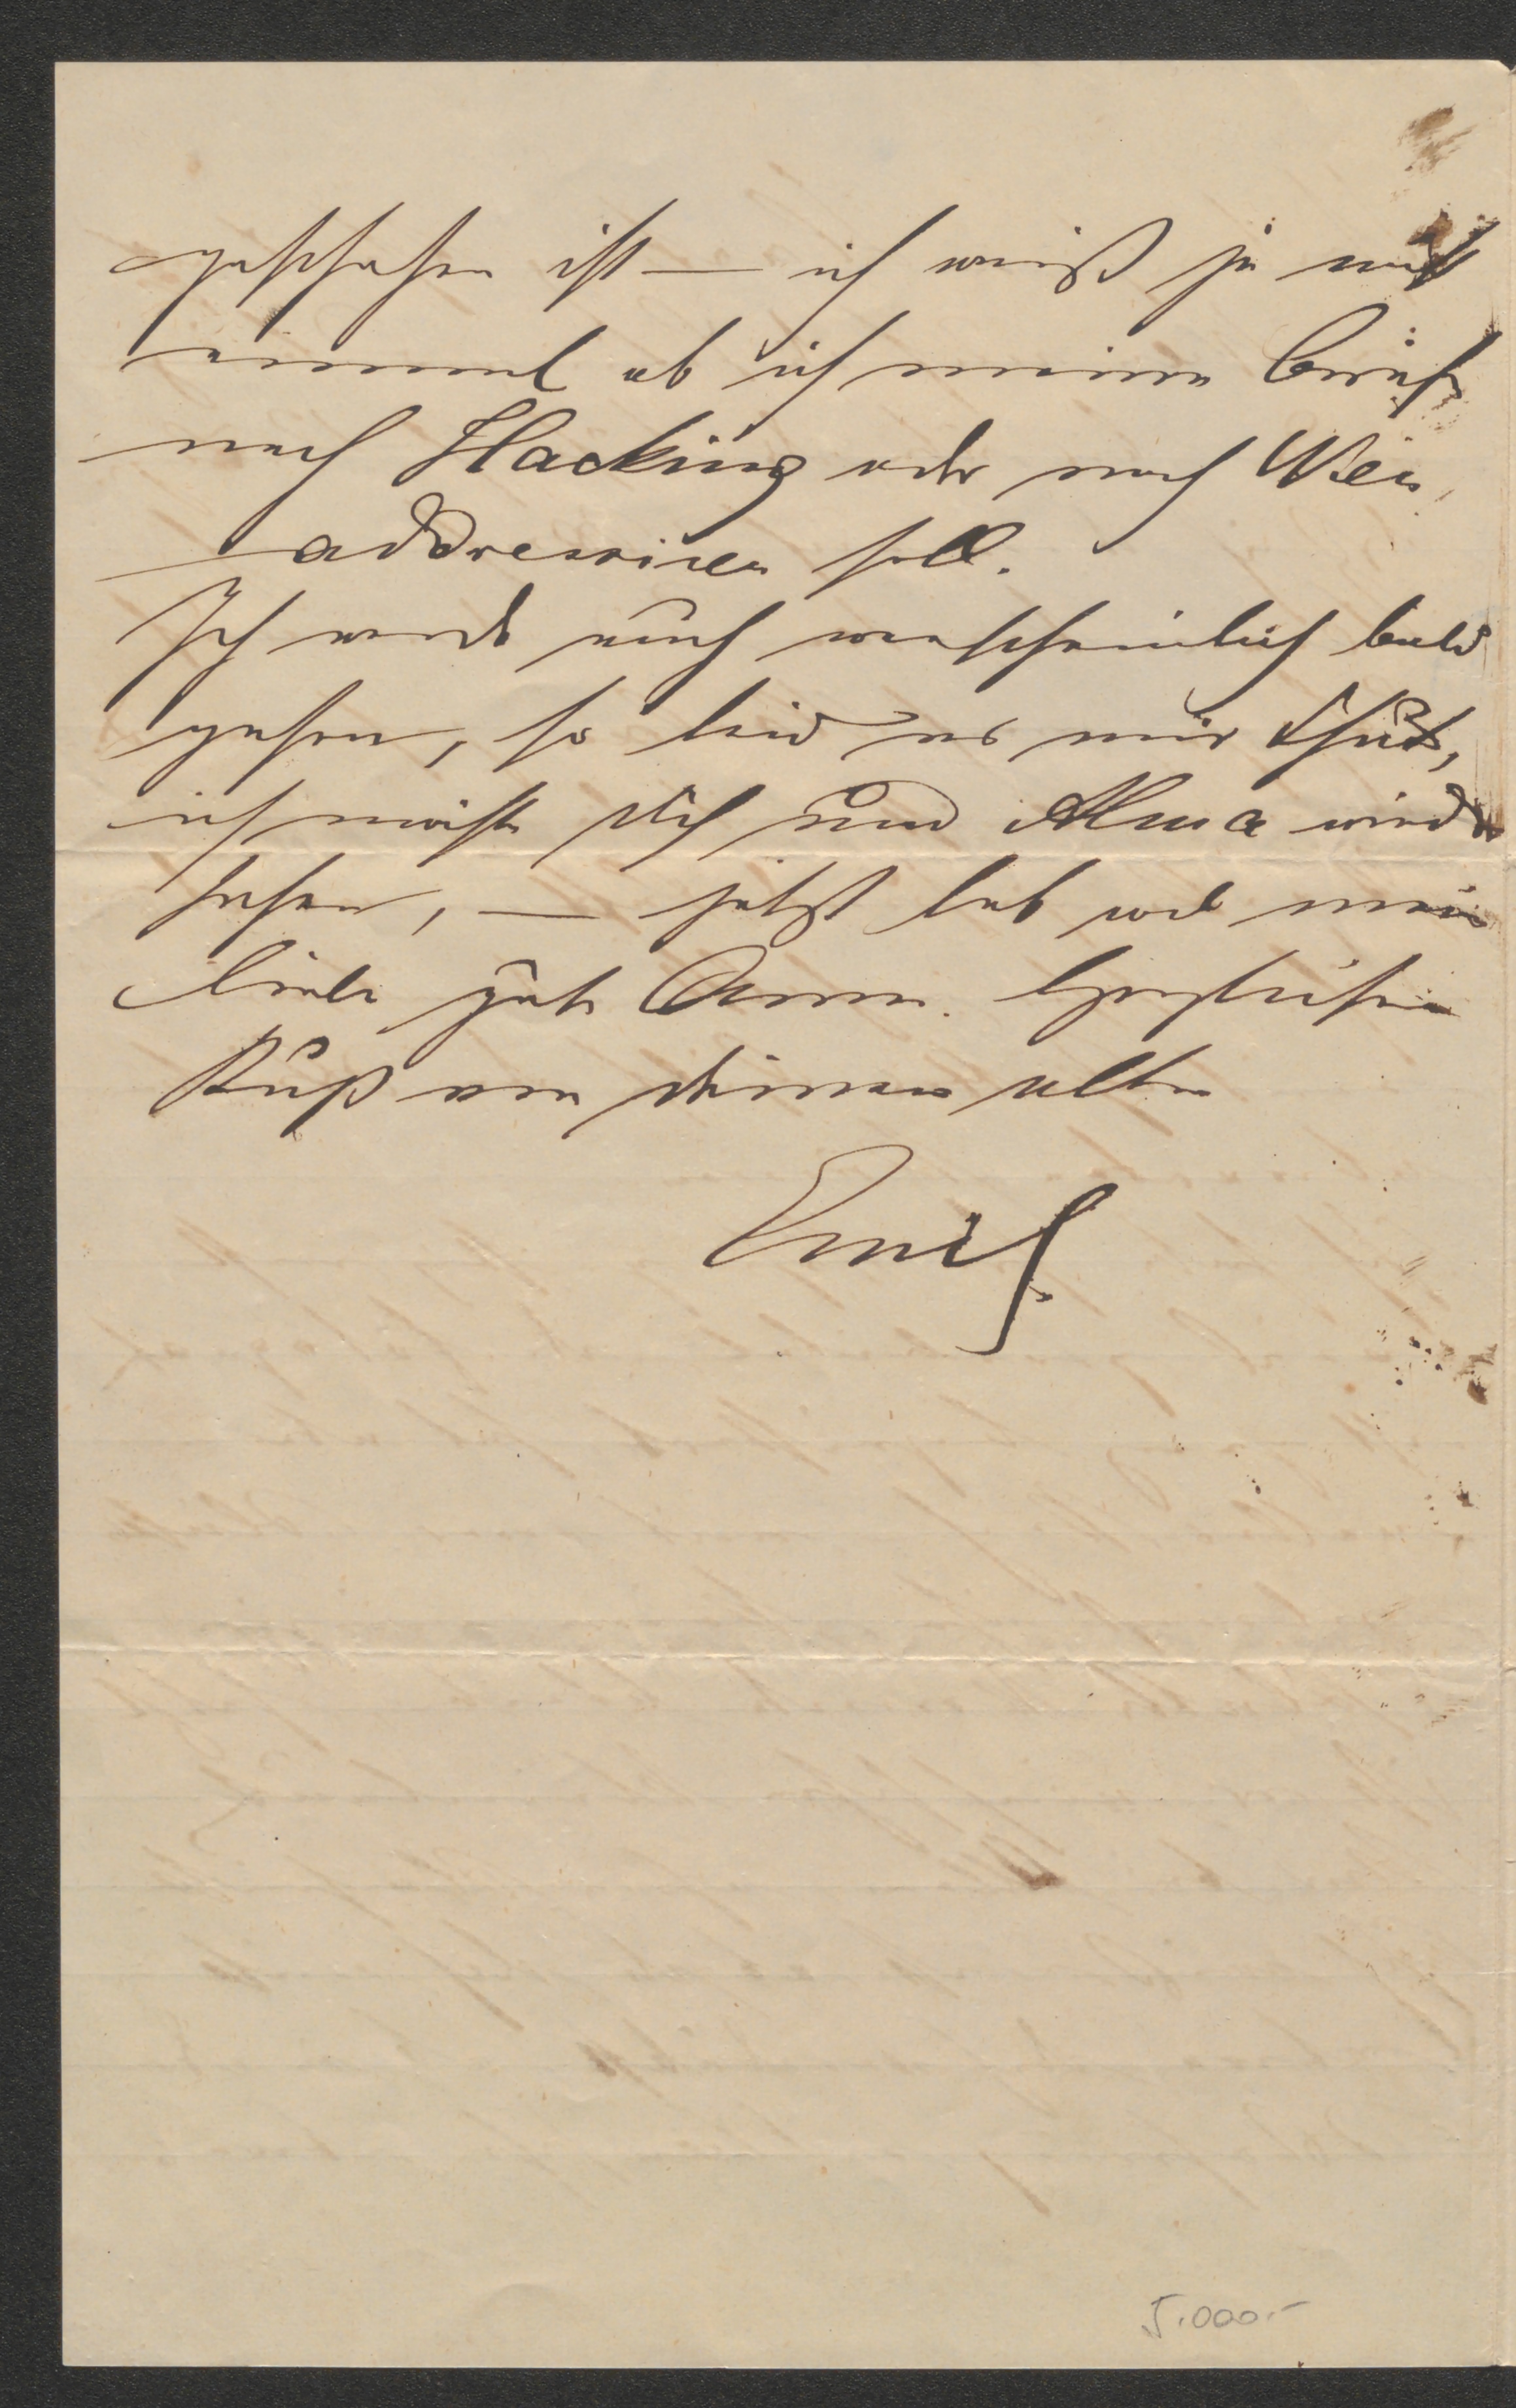 geschehen ist — ich weiß ja nicht
einmal ob ich meinen Brief
nach Hacking oder nach Wien
addressiren soll.
Ich werde mich warscheinlich bald
gehen, so leid es mir thut,
ich möchte Dich und Alma wieder
sehen, — jetzt leb wol meine
liebe gute Anna. Herzlichen
Kuß von Deinem alten
Emil
5.000.-